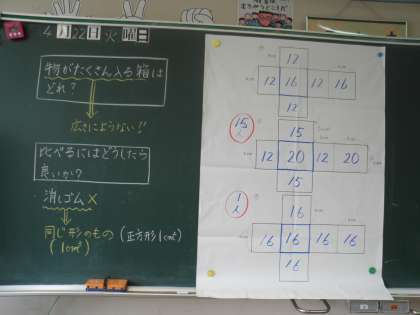 4月22日火曜日
物がたくさん入る箱は
どれ?
広さによらない!!
比べるにはどうしたら
良いか?
消しゴム×
同じ形のもの(正方形1cm²)
(1cm²)
12
12 16 12 16
12
15人
15
12 20 12 20
15
1人
16
16 16 16 16
16